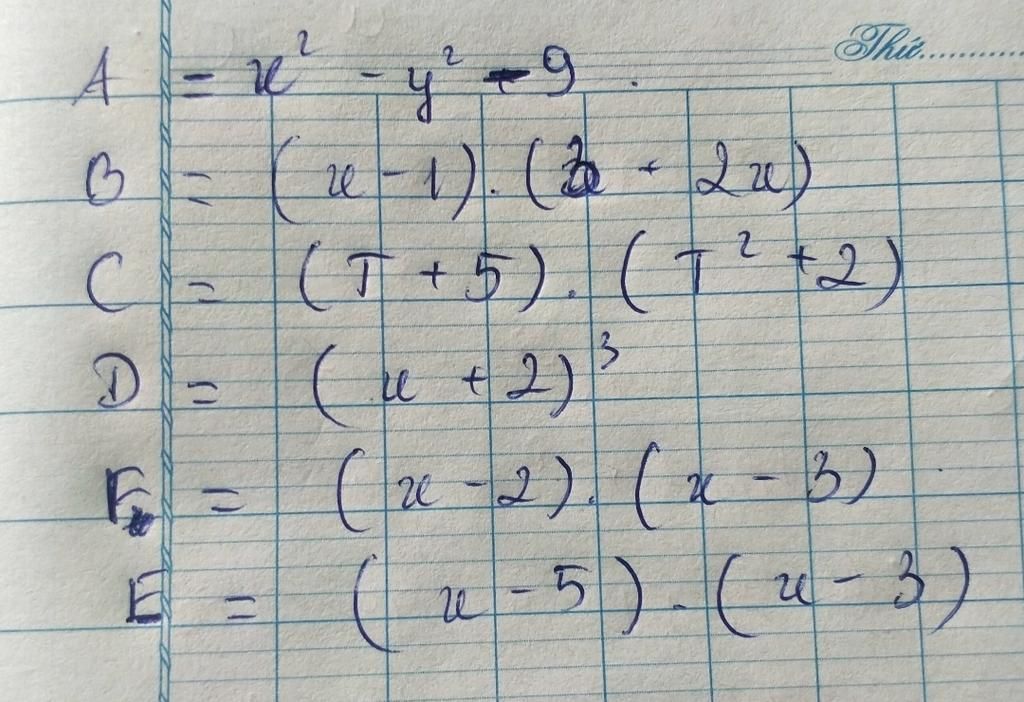 Thứ..........
A = x² - y² - 9.
B = (x - 1). (3 + 2x)
C = (T + 5). (T² + 2)
D = (x + 2)³
F = (x - 2). (x - 3)
E = (x - 5). (x - 3)